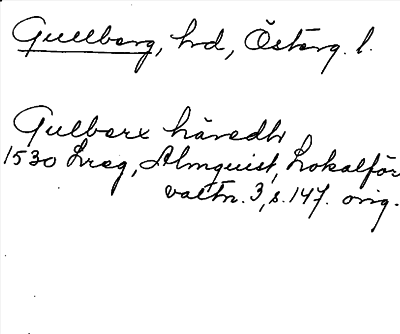 Gullberg, hd, Österg. l.
Gulberx häredh
1530 Lreg, Almquist, Lokalför
valtn. 3, s. 147. orig.